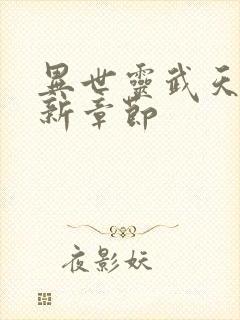 異世靈武天
新章節
夜影妖